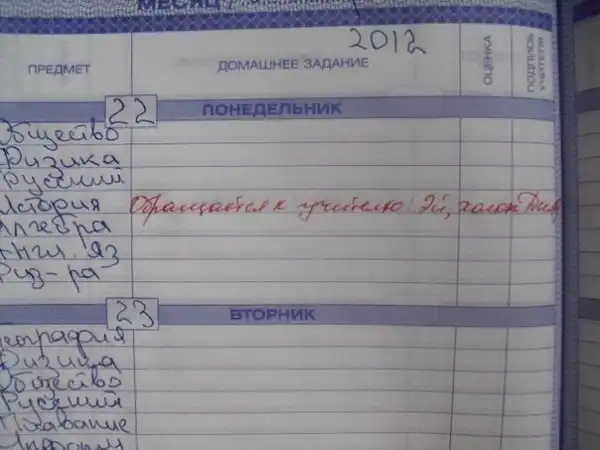 МЕСЯЦ
2012
ПРЕДМЕТ
ДОМАШНЕЕ ЗАДАНИЕ
ОЦЕНКА
ПОДПИСЬ УЧИТЕЛЯ
22
ПОНЕДЕЛЬНИК
Общество
Физика
Русский
История Обращается к учителю: Эй, холоп
Алгебра
Англ. яз
Физ-ра
23
ВТОРНИК
География
Физика
Общество
Русский
Плавание
Информ